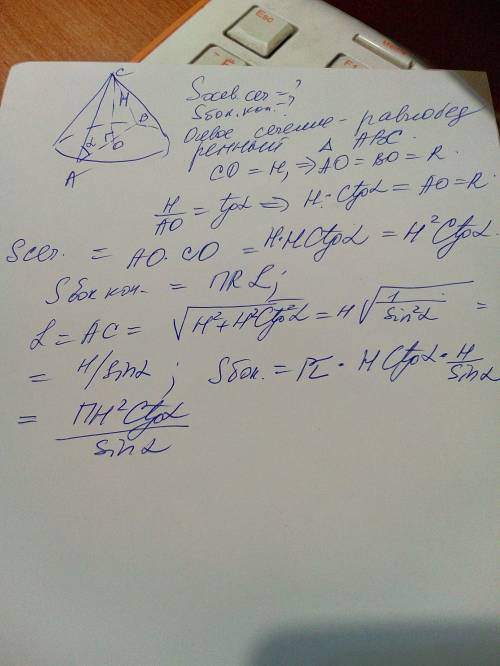 Esc
C
H
B
α
O
A
Sосев. сеч = ?
Sбок. кон. - ?
Осевое сечение - равнобед
ренный Δ ABC.
CO = H, ⇒ AO = BO = R.
H/AO = tgα ⇒ H·Ctgα = AO = R.
Sсеч. = AO·CO = H·HCtgα = H²Ctgα.
Sбок кон. = ПRL;
L = AC = √(H²+H²Ctg²α) = H√(1/sin²α) =
= H/sinα; Sбок. = π · HCtgα · H/sinα
= ПH²Ctgα/sinα